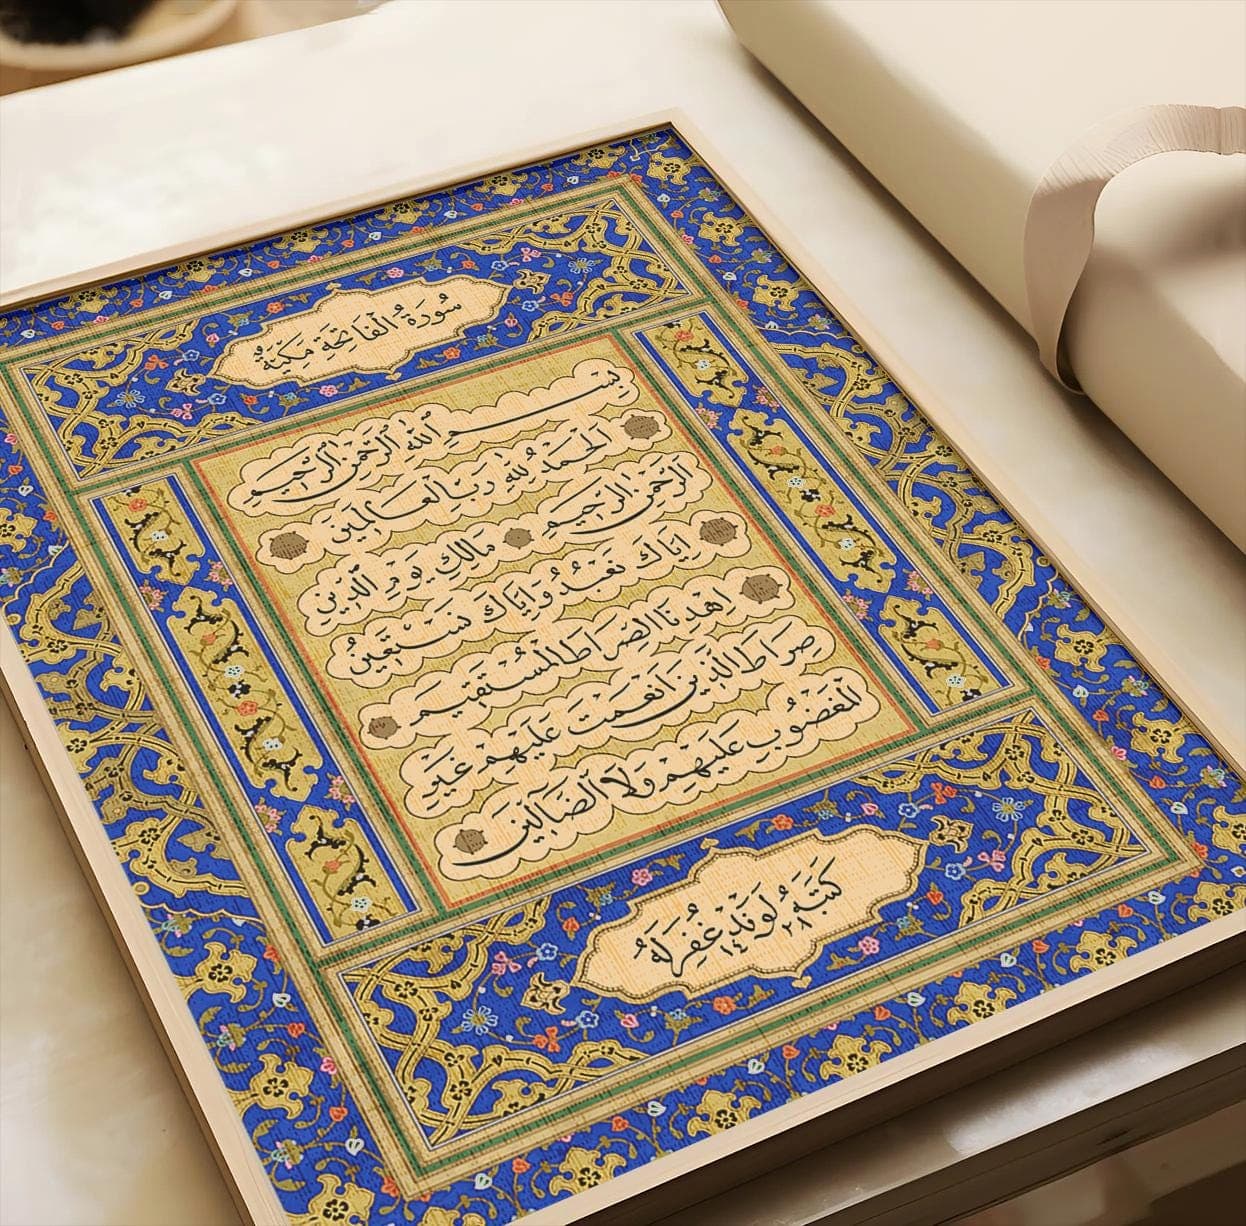 سُورَةُ الْفَاتِحَةِ مَكِّيَّةٌ
بِسْمِ اللّٰهِ الرَّحْمٰنِ الرَّحِيمِ
اَلْحَمْدُ لِلّٰهِ رَبِّ الْعَالَمِينَ
اَلرَّحْمٰنِ الرَّحِيمِ مَالِكِ يَوْمِ الدِّينِ
اِيَّاكَ نَعْبُدُ وَاِيَّاكَ نَسْتَعِينُ
اِهْدِنَا الصِّرَاطَ الْمُسْتَقِيمَ
صِرَاطَ الَّذِينَ اَنْعَمْتَ عَلَيْهِمْ غَيْرِ
الْمَغْضُوبِ عَلَيْهِمْ وَلَا الضَّٓالِّينَ
كَتَبَهُ لَوَنْد غُفِرَ لَهُ
١٤٢٨